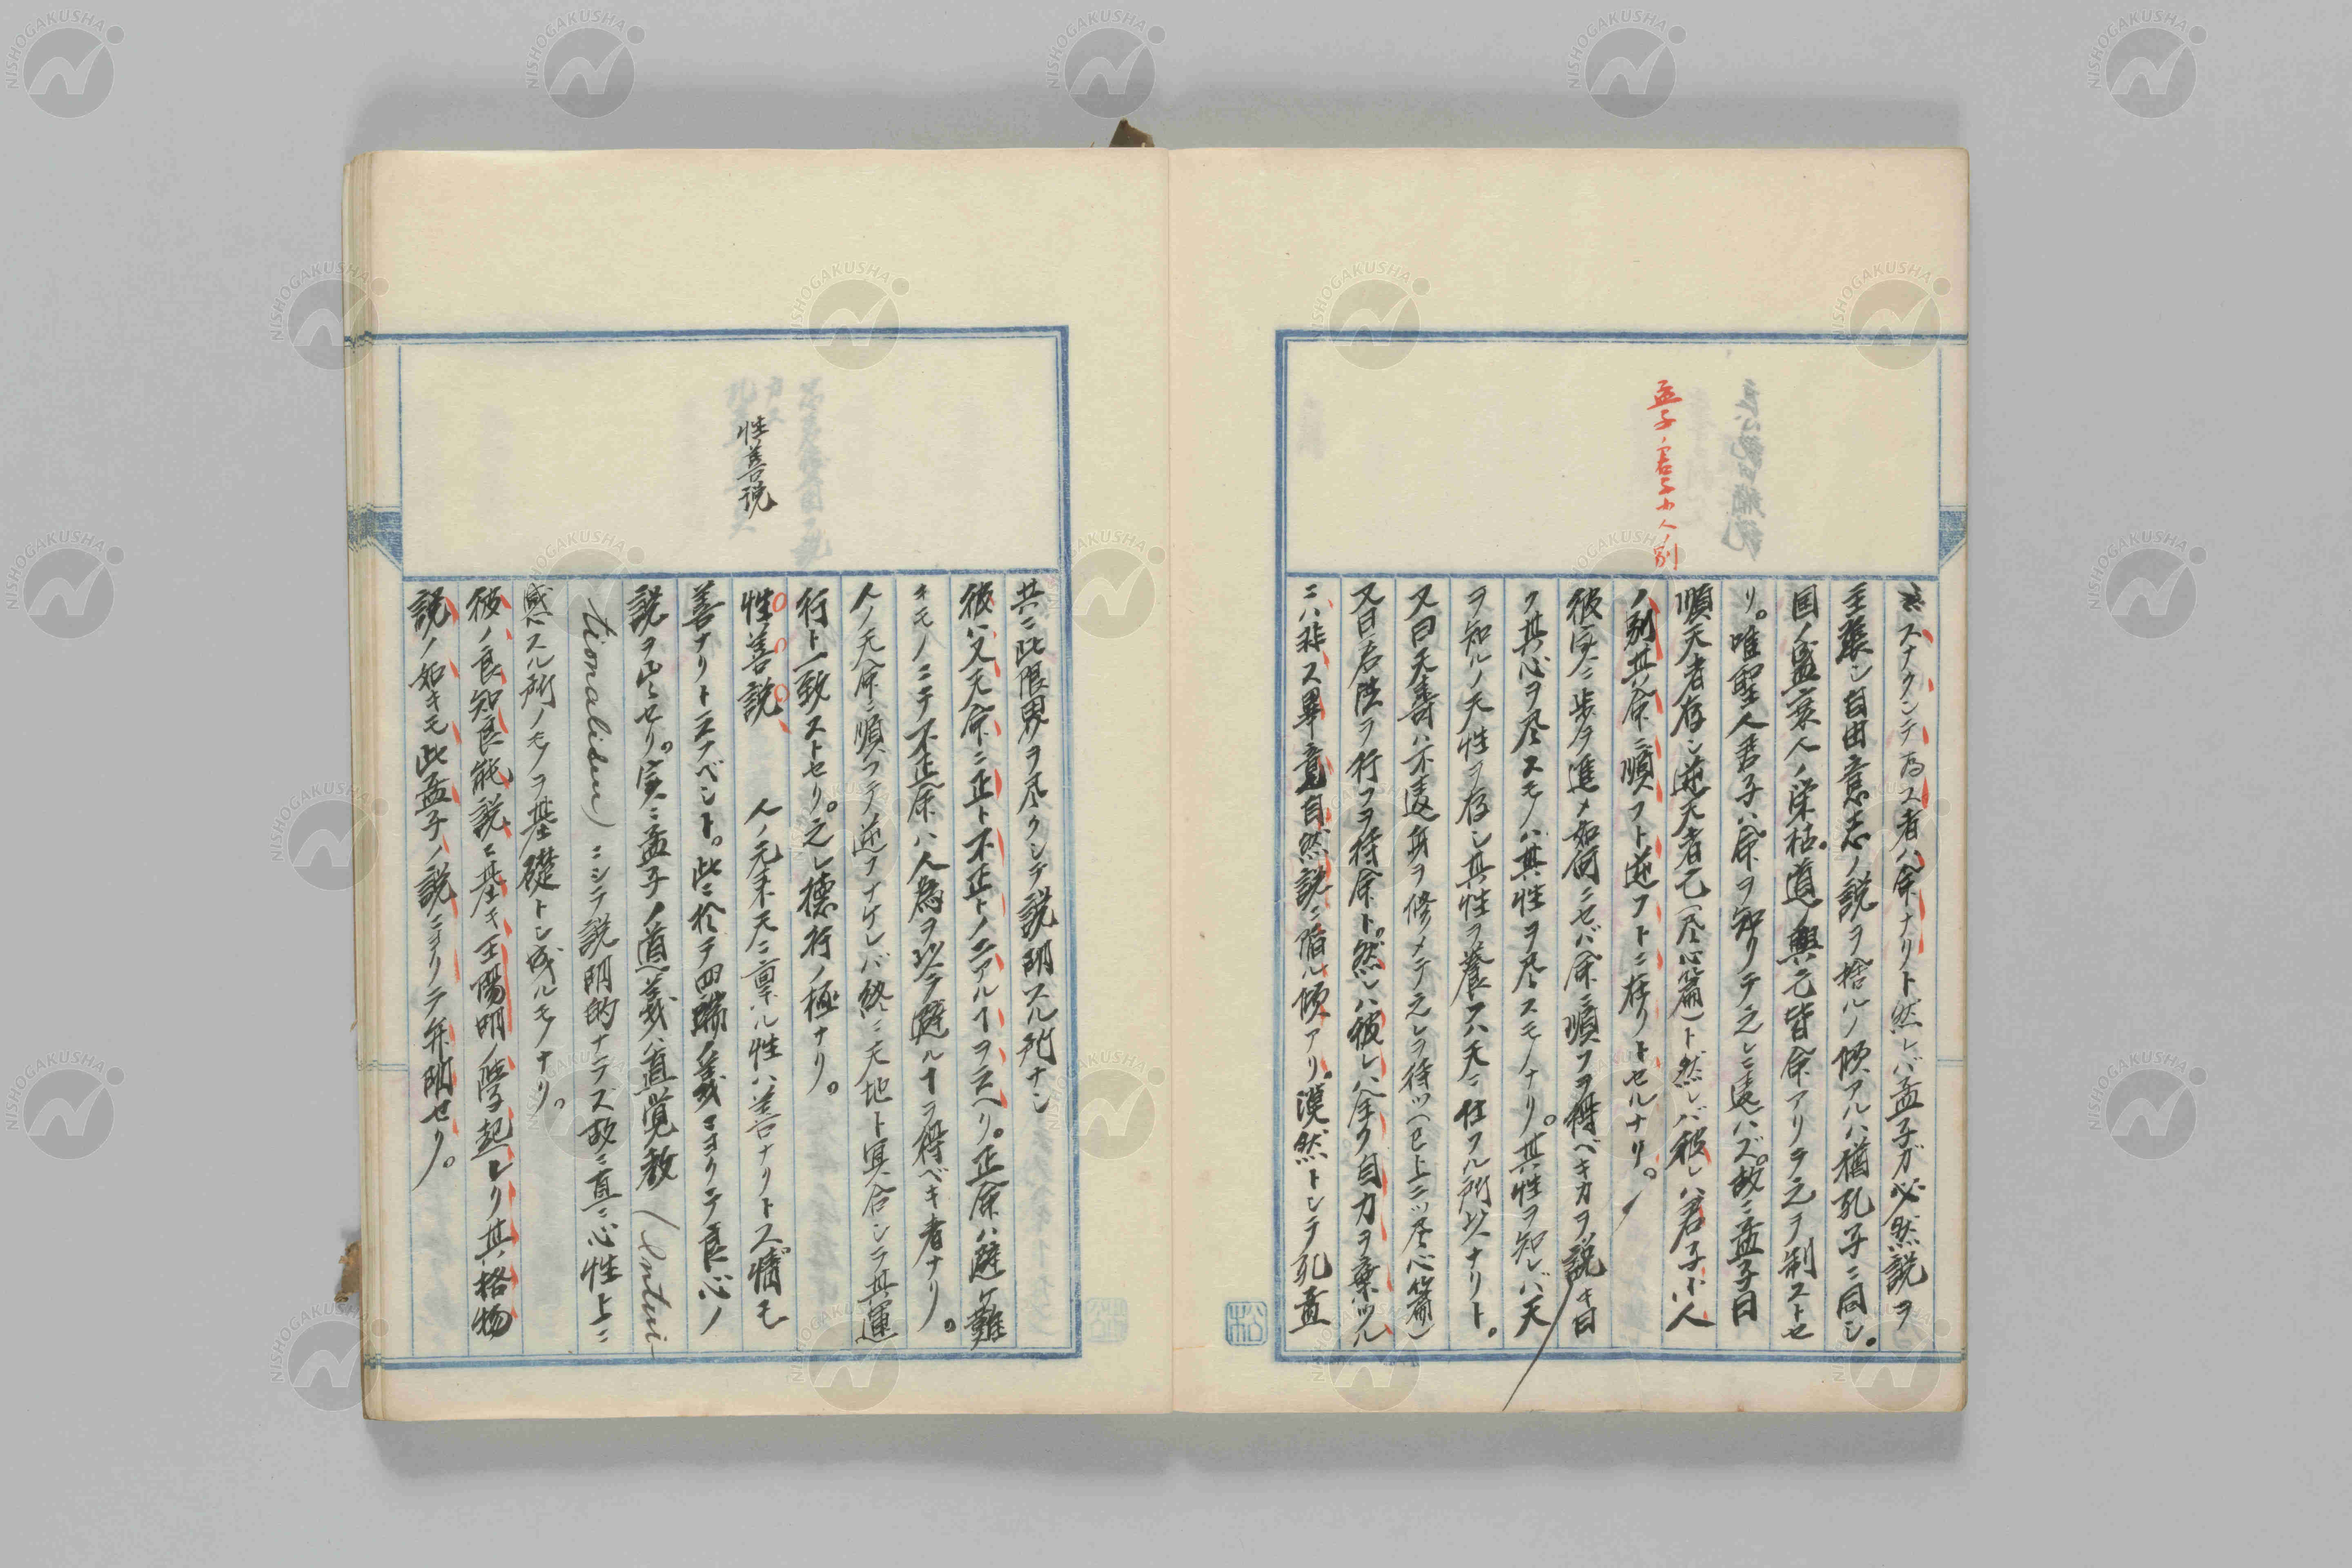 孟子ノ君子小人ノ別
スナクシテ為ス者ハ命ナリト然レバ孟子ガ必然説ヲ
主張シ自由意志ノ説ヲ捨ルノ傾アルハ猶孔子ニ同シ。
国ノ盛衰人ノ栄枯。道ノ興亡皆命アリテ之ヲ制ストセ
リ。唯聖人君子ハ命ヲ知リテ之レニ違ハズ。故ニ孟子曰
順天者存シ逆天者亡(尽心篇)ト然レバ彼レハ君子小人
ノ別其ノ命ニ順フト逆フトニ存リトセルナリ。
彼実ニ歩ヲ進メ如何ニセバ命ニ順フヲ得ベキカヲ説キ曰
ク其心ヲ尽スモノハ其性ヲ尽スモノナリ。其性ヲ知レバ天
ヲ知ルノ天性ヲ存シ其性ヲ養フハ天ニ仕フル所以ナリト。
又曰夭寿ハ不違身ヲ修メテ之レヲ待ツ(已上二ツ尽心篇)
又曰君法ヲ行フヲ待命ト。然レハ彼レハ全ク自力ヲ棄ツル
ニハ非ス畢竟自然説ニ陥ル傾アリ。漠然トシテ孔孟
性善説
共ニ此限界ヲ尽クシテ説明スル所ナシ
彼ハ又天命ニ正ト不正トノ二アルヿヲ云ヘリ。正命ハ避ケ難
キモノニテ不正命ハ人為ヲ以テ避ルヿヲ得ベキ者ナリ。
人ノ天命ニ順フテ逆フナケレバ終ニ天地ト冥合シテ其運
行ト一致ストセリ。之レ徳行ノ極ナリ。
性善説 人ノ元来天ニ稟ル性ハ善ナリトス情モ
善ナリト云フベシト。此ニ於テ四端ノ義ヨリシテ良心ノ
説ヲ出セリ。実ニ孟子ノ道義ハ直覚教(Intui-
tionalism)ニシテ説明的ナラズ故ニ直ニ心性上ニ
感スル所ノモノヲ基礎トシ成ルモノナリ。
彼ノ良知良能説ニ基キ王陽明ノ学起レリ其ノ格物
説ノ如キモ此孟子ノ説ニヨリテ弁明セリ。
松
NISHOGAKUSHA